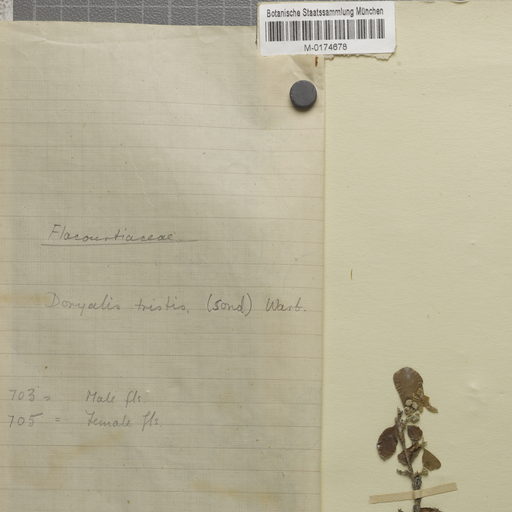 Botanische Staatssammlung München
M-0174678
Flacourtiaceae
Doryalis tristis, (Sond) Warb.
703 = Male fls.
705 = Female fls.